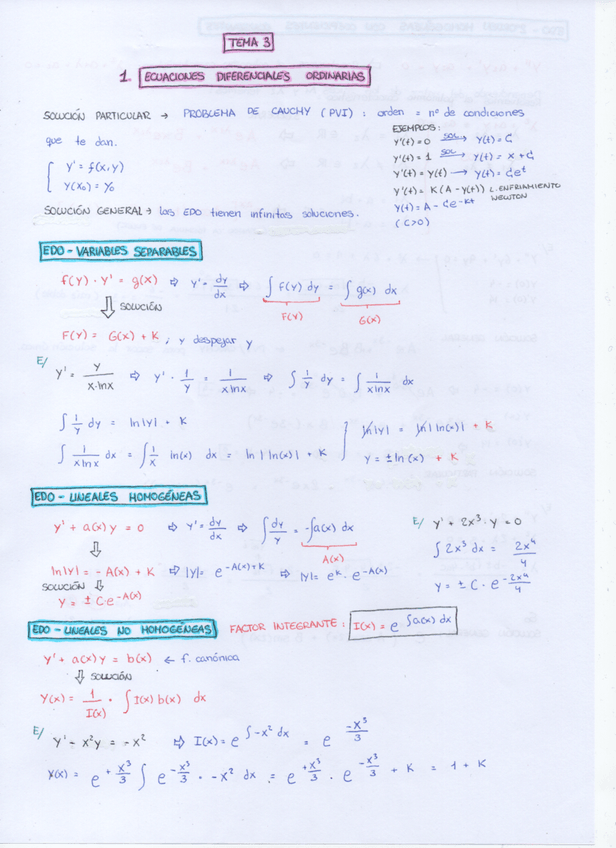 TEMA 3
1. ECUACIONES DIFERENCIALES ORDINARIAS
SOLUCIÓN PARTICULAR → PROBLEMA DE CAUCHY (PVI) : orden = nº de condiciones
que te dan.
{ y' = f(x,y)
y(x₀) = y₀
EJEMPLOS:
y'(t) = 0 SOL→ y(t) = C
y'(t) = 1 SOL→ y(t) = x + C
y'(t) = y(t) → y(t) = Ce^t
y'(t) = K(A - y(t)) L. ENFRIAMIENTO NEWTON
y(t) = A - Ce^-Kt
(C>0)
SOLUCIÓN GENERAL → las EDO tienen infinitas soluciones.
EDO - VARIABLES SEPARABLES
f(y) · y' = g(x) ⇒ y' = dy/dx ⇒ ∫ f(y) dy = ∫ g(x) dx
F(y) G(x)
⇓ SOLUCIÓN
F(y) = G(x) + K , y despejar y
E/ y' = y/(x·lnx) ⇒ y' · 1/y = 1/(xlnx) ⇒ ∫ 1/y dy = ∫ 1/(xlnx) dx
∫ 1/y dy = ln|y| + K
∫ 1/(xlnx) dx = ∫ 1/x ln(x) dx = ln|ln(x)| + K
ln|y| = ln|ln(x)| + K
y = ± ln(x) + K
EDO - LINEALES HOMOGÉNEAS
y' + a(x)y = 0 ⇒ y' = dy/dx ⇒ ∫ dy/y = -∫a(x) dx
A(x)
⇓
ln|y| = -A(x) + K ⇒ |y| = e^(-A(x)+K) ⇒ |y| = e^K · e^(-A(x))
SOLUCIÓN ⇓
y = ± C e^(-A(x))
E/ y' + 2x³·y = 0
∫ 2x³ dx = 2x⁴/4
y = ± C · e^(-2x⁴/4)
EDO - LINEALES NO HOMOGÉNEAS FACTOR INTEGRANTE : I(x) = e^(∫a(x) dx)
y' + a(x)y = b(x) ← f. canónica
⇓ SOLUCIÓN
y(x) = 1/I(x) · ∫ I(x) b(x) dx
E/ y' - x²y = -x² ⇒ I(x) = e^(∫-x² dx) = e^(-x³/3)
y(x) = e^(+x³/3) ∫ e^(-x³/3) · -x² dx = e^(+x³/3) · e^(-x³/3) + K = 1 + K